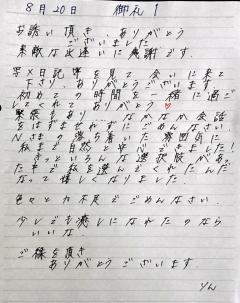 8月20日 御礼！
お誘い頂き、ありがとう
ございました
素敵な出逢いに感謝です。
写メ日記等を見て会いに来て
下さり ありがとうございます
初めての時間を一緒に過ご
してくれて ありがとう♡
緊張もあり なかなか会話
をはずませれずにごめんなさい。
Nさまの落ち着いた雰囲気に
私まで自然と安心できました！
きっといろんな選択肢があっ
た中で私を選んでくれたんだ
な。って嬉しくなりました。
色々と力不足でごめんなさい。
少しでも癒しになれたのなら
いいな
ご縁を頂き
ありがとうございます
りん